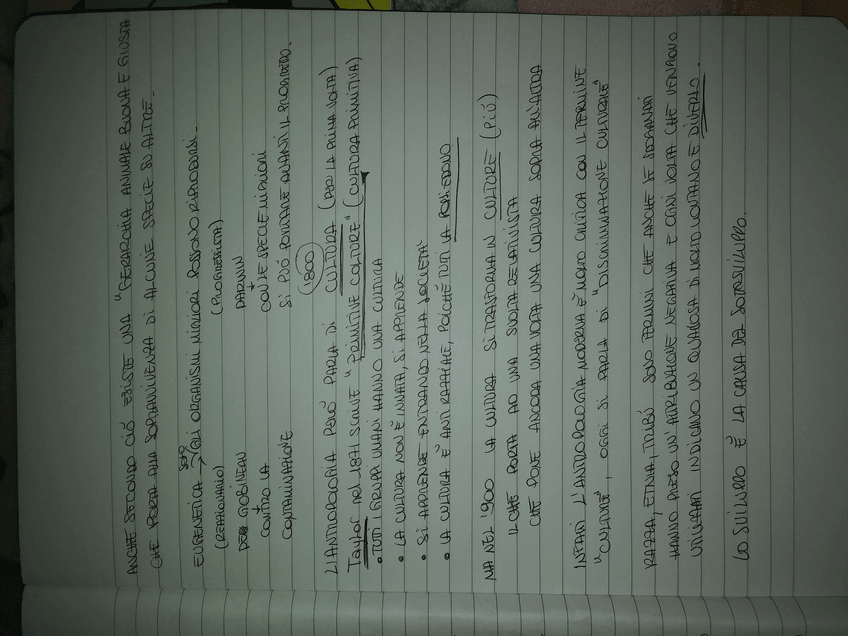 ANCHE SECONDO CIÒ ESISTE UNA "GERARCHIA ANIMALE BUONA E GIUSTA
CHE PORTA ALLA SOPRAVVIVENZA DI ALCUNE SPECIE SU ALTRE.
EUGENETICA → SOLO GLI ORGANISMI MIGLIORI POSSONO RIPRODURSI.
(REAZIONARIO) (PROGRESSISTA)
PER GOBINEAU DARWIN
CONTRO LA CON LE SPECIE MIGLIORI
CONTAMINAZIONE SI PUÒ PORTARE AVANTI IL PROGRESSO.
1800
L'ANTROPOLOGIA PERÒ PARLA DI CULTURA (PER LA PRIMA VOLTA)
Taylor nel 1871 SCRIVE "PRIMITIVE COLTURE" (CULTURA PRIMITIVA)
• TUTTI I GRUPPI UMANI HANNO UNA CULTURA
• LA CULTURA NON È INNATA, SI APPRENDE
• SI APPRENDE ENTRANDO NELLA SOCIETÀ
• LA CULTURA È ANTI RAZZIALE, POICHÈ TUTTI LA POSSIEDONO
MA NEL '900 LA CULTURA SI TRASFORMA IN CULTURE (PIÙ)
IL CHE PORTA AD UNA SVOLTA RELATIVISTA
CHE PONE ANCORA UNA VOLTA UNA CULTURA SOPRA UN'ALTRA
INFATTI L'ANTROPOLOGIA MODERNA È MOLTO CRITICA CON IL TERMINE
"CULTURE", OGGI SI PARLA DI "DISCRIMINAZIONE CULTURALE"
RAZZA, ETNIA, TRIBÙ SONO TERMINI CHE ANCHE SE SEGNATI
HANNO PRESO UN'ATTRIBUZIONE NEGATIVA E OGNI VOLTA CHE VENGONO
UTILIZZATI INDICANO UN QUALCOSA DI MOLTO LONTANO E DIVERSO.
LO SVILUPPO È LA CAUSA DEL SOTTOSVILUPPO.